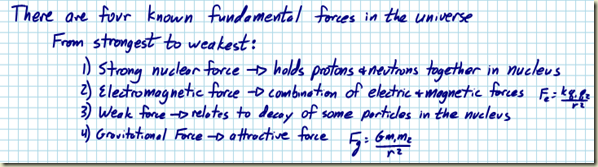 There are four known fundamental forces in the universe
From strongest to weakest:
1) Strong nuclear force → holds protons & neutrons together in nucleus
2) Electromagnetic force → combination of electric + magnetic forces Fe = kq1q2/r²
3) Weak force → relates to decay of some particles in the nucleus
4) Gravitational Force → attractive force Fg = Gm1m2/r²